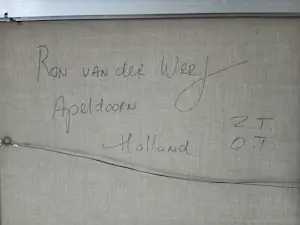 Ron van der Werf
Apeldoorn
Z.T.
Holland
O.T.